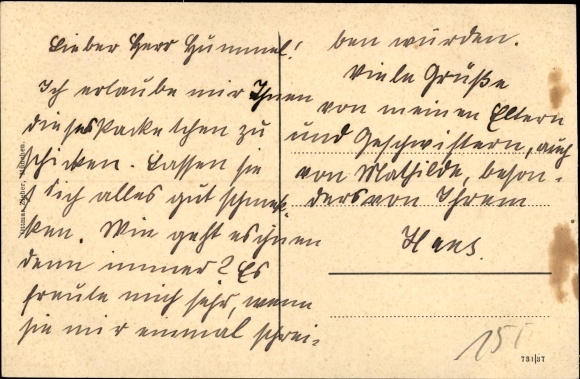 Lieber Herr Hummel!
Ich erlaube mir Ihnen
dieses Packetchen zu
schicken. Lassen sie
sich alles gut schmek-
ken. Wie geht es ihnen
denn immer? Es
freute mich sehr, wenn
sie mir einmal schrei-
ben würden.
Viele Grüße
von meinen Eltern
und Geschwistern, auch
von Mathilde, beson-
ders von Ihrem
Hans.
151
731/37